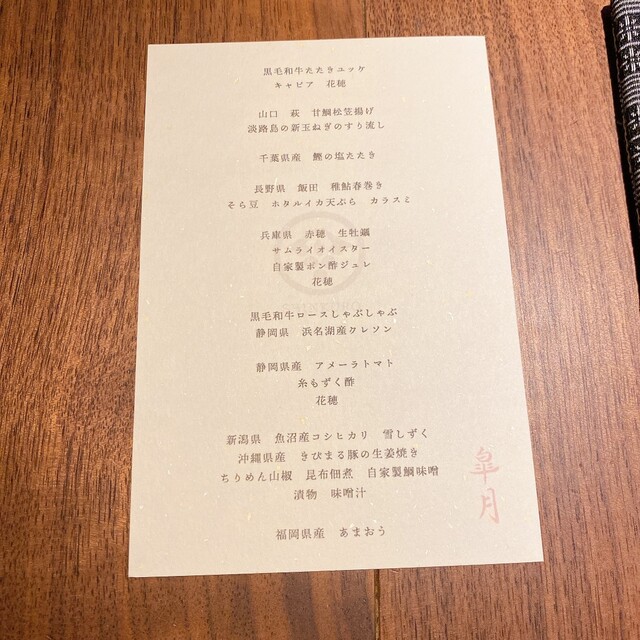 黒毛和牛たたきユッケ
キャビア　花穂
山口　萩　甘鯛松笠揚げ
淡路島の新玉ねぎのすり流し
千葉県産　鰹の塩たたき
長野県　飯田　稚鮎春巻き
そら豆　ホタルイカ天ぷら　カラスミ
兵庫県　赤穂　生牡蠣
サムライオイスター
自家製ポン酢ジュレ
花穂
黒毛和牛ロースしゃぶしゃぶ
静岡県　浜名湖産クレソン
静岡県産　アメーラトマト
糸もずく酢
花穂
新潟県　魚沼産コシヒカリ　雪しずく
沖縄県産　きびまる豚の生姜焼き
ちりめん山椒　昆布佃煮　自家製鯛味噌
漬物　味噌汁
福岡県産　あまおう
皐月